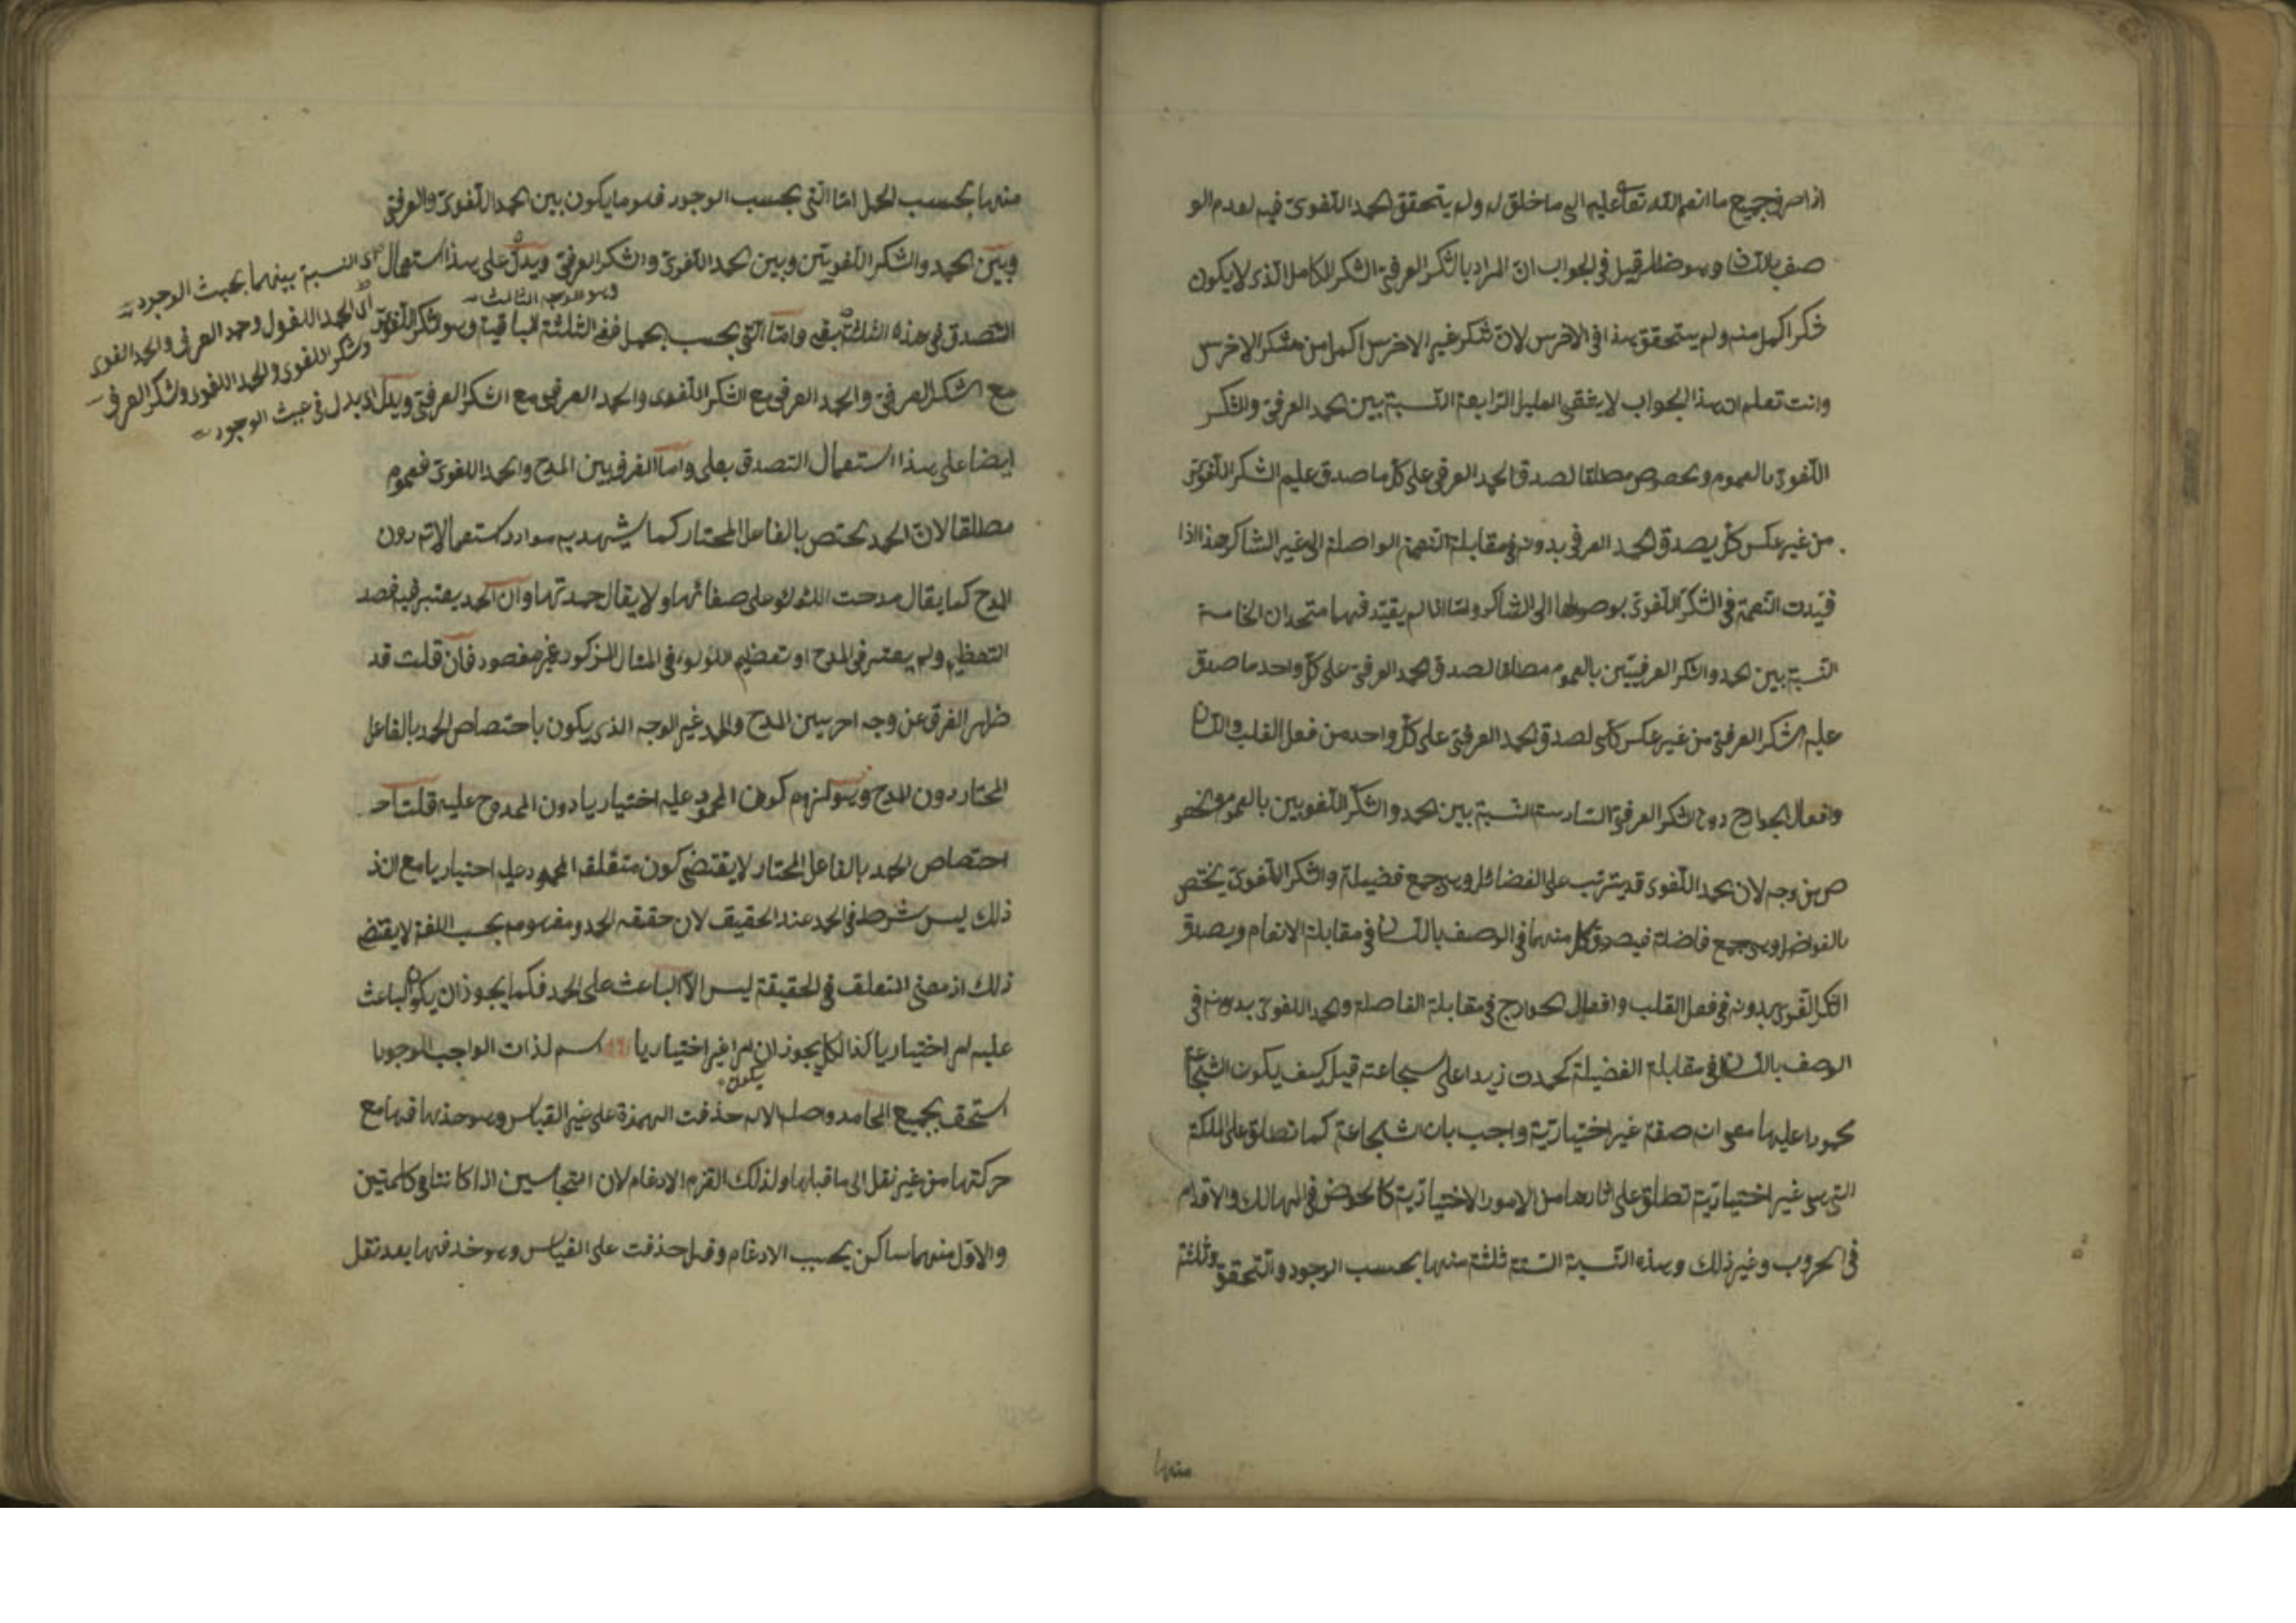 اذا صرف جميع ما انعم الله تعا عليه الى ما خلق له ولم يتحقق الحمد اللغوى فيه لعدم الو
صف باللسان وهو ضار قيل فى الجواب ان المراد بالشكر العرفى الشكر الكامل الذى لا يكون
شكر اكمل منه ولم يتحقق هذا فى الاخرس لان شكر غير الاخرس اكمل من شكر الاخرس
وانت تعلم ان هذا الجواب لا يشفى العليل الرابعة النسبة بين الحمد العرفى والشكر
اللغوى بالعموم والخصوص مطلقا لصدق الحمد العرفى على كل ما صدق عليه الشكر اللغوى
من غير عكس كلى يصدق الحمد العرفى بدونه فى مقابلة النعمة الواصلة الى غير الشاكر هذا اذا
قيدت النعمة فى الشكر اللغوى بوصولها الى الشاكر واما اذا لم يقيد فهما متحدان الخامسة
النسبة بين الحمد والشكر العرفيين بالعموم مطلقا لصدق الحمد العرفى على كل واحد ما صدق
عليه الشكر العرفى من غير عكس كلى لصدق الحمد العرفى على كل واحد من فعل القلب واللسان
وافعال الجوارح دون الشكر العرفى السادسة النسبة بين الحمد والشكر اللغويين بالعموم والخصو
ص من وجه لان الحمد اللغوى قد يترتب على الفضائل وهى جمع فضيلة والشكر اللغوى يختص
بالفواضل وهى جمع فاضلة فيصدق كل منهما فى الوصف باللسان فى مقابلة الانعام ويصدق
الشكر اللغوى بدونه فى فعل القلب وافعال الجوارح فى مقابلة الفاضلة والحمد اللغوى بدونه فى
الوصف باللسان فى مقابلة الفضيلة كحمدت زيدا على شجاعته قيل كيف يكون الشجاعة
محمودا عليها مع انه صفة غير اختيارية واجيب بان الشجاعة كما تطلق على الملكة
التى هى غير اختيارية تطلق على اثارها من الامور الاختيارية كالخوض فى المهالك والاقدام
فى الحروب وغير ذلك وهذه النسبة الستة ثلثة منها بحسب الوجود والتحقق وثلثة
منها
منها بحسب الحمل اما التى بحسب الوجود فهو ما يكون بين الحمد اللغوى والعرفى
وبين الحمد والشكر اللغويين وبين الحمد اللغوى والشكر العرفى ويدل على هذا استعمال
التصدق فى هذه الثلثة بفى واما التى بحسب الحمل ففى الثلثة الباقية وهو الشكر اللغوى
مع الشكر العرفى والحمد العرفى مع الشكر اللغوى والحمد العرفى مع الشكر العرفى ويدل
ايضا على هذا استعمال التصدق بعلى واما الفرق بين المدح والحمد اللغوى فعموم
مطلقا لان الحمد يختص بالفاعل المختار كما يشهد به موارد استعمالاته دون
المدح كما يقال مدحت اللؤلؤ على صفائها ولا يقال حمدتها وان الحمد يعتبر فيه قصد
التعظيم ولم يعتبر فى المدح او تعظيم اللؤلوء فى المثال المذكور غير مقصود فان قلت قد
ظهر الفرق عن وجه اخر بين المدح والحمد غير الوجه الذى يكون باختصاص الحمد بالفاعل
المختار دون المدح وهو لزوم كون المحمود عليه اختياريا دون الممدوح عليه قلت
احتصاص الحمد بالفاعل المختار لا يقتضى كون متعلقه المحمود عليه اختياريا مع ان
ذلك ليس شرط فى الحمد عند الحقيق لان حقيقه الحمد ومفهومه بحسب اللغة لا يقتضى
ذلك اذ معنى التعلق فى الحقيقة ليس الا الباعث على الحمد فكما يجوز ان يكون الباعث
عليه امر اختياريا كذالك يجوز ان امرا غير اختياريا اسم لذات الواجب الوجود
يكون
استحق بجميع المحامد واصله الاله حذفت الهمزة على غير القياس وهو حذفها مع
حركتها من غير نقل الى ما قبلها ولذلك التزم الادغام لان المتجانسين اذا كانتا فى كلمتين
والاول منهما ساكن يجب الادغام وقيل حذفت على القياس وهو حذفها بعد نقل
اى النسبة بينهما بحيث الوجود
وهو الوجه الثالث
اى الحمد اللغوى وحمد العرفى والحمد اللغوى
وشكر اللغوى والحمد اللغوى وشكر العرفى
اى يدل فى حيث الوجود